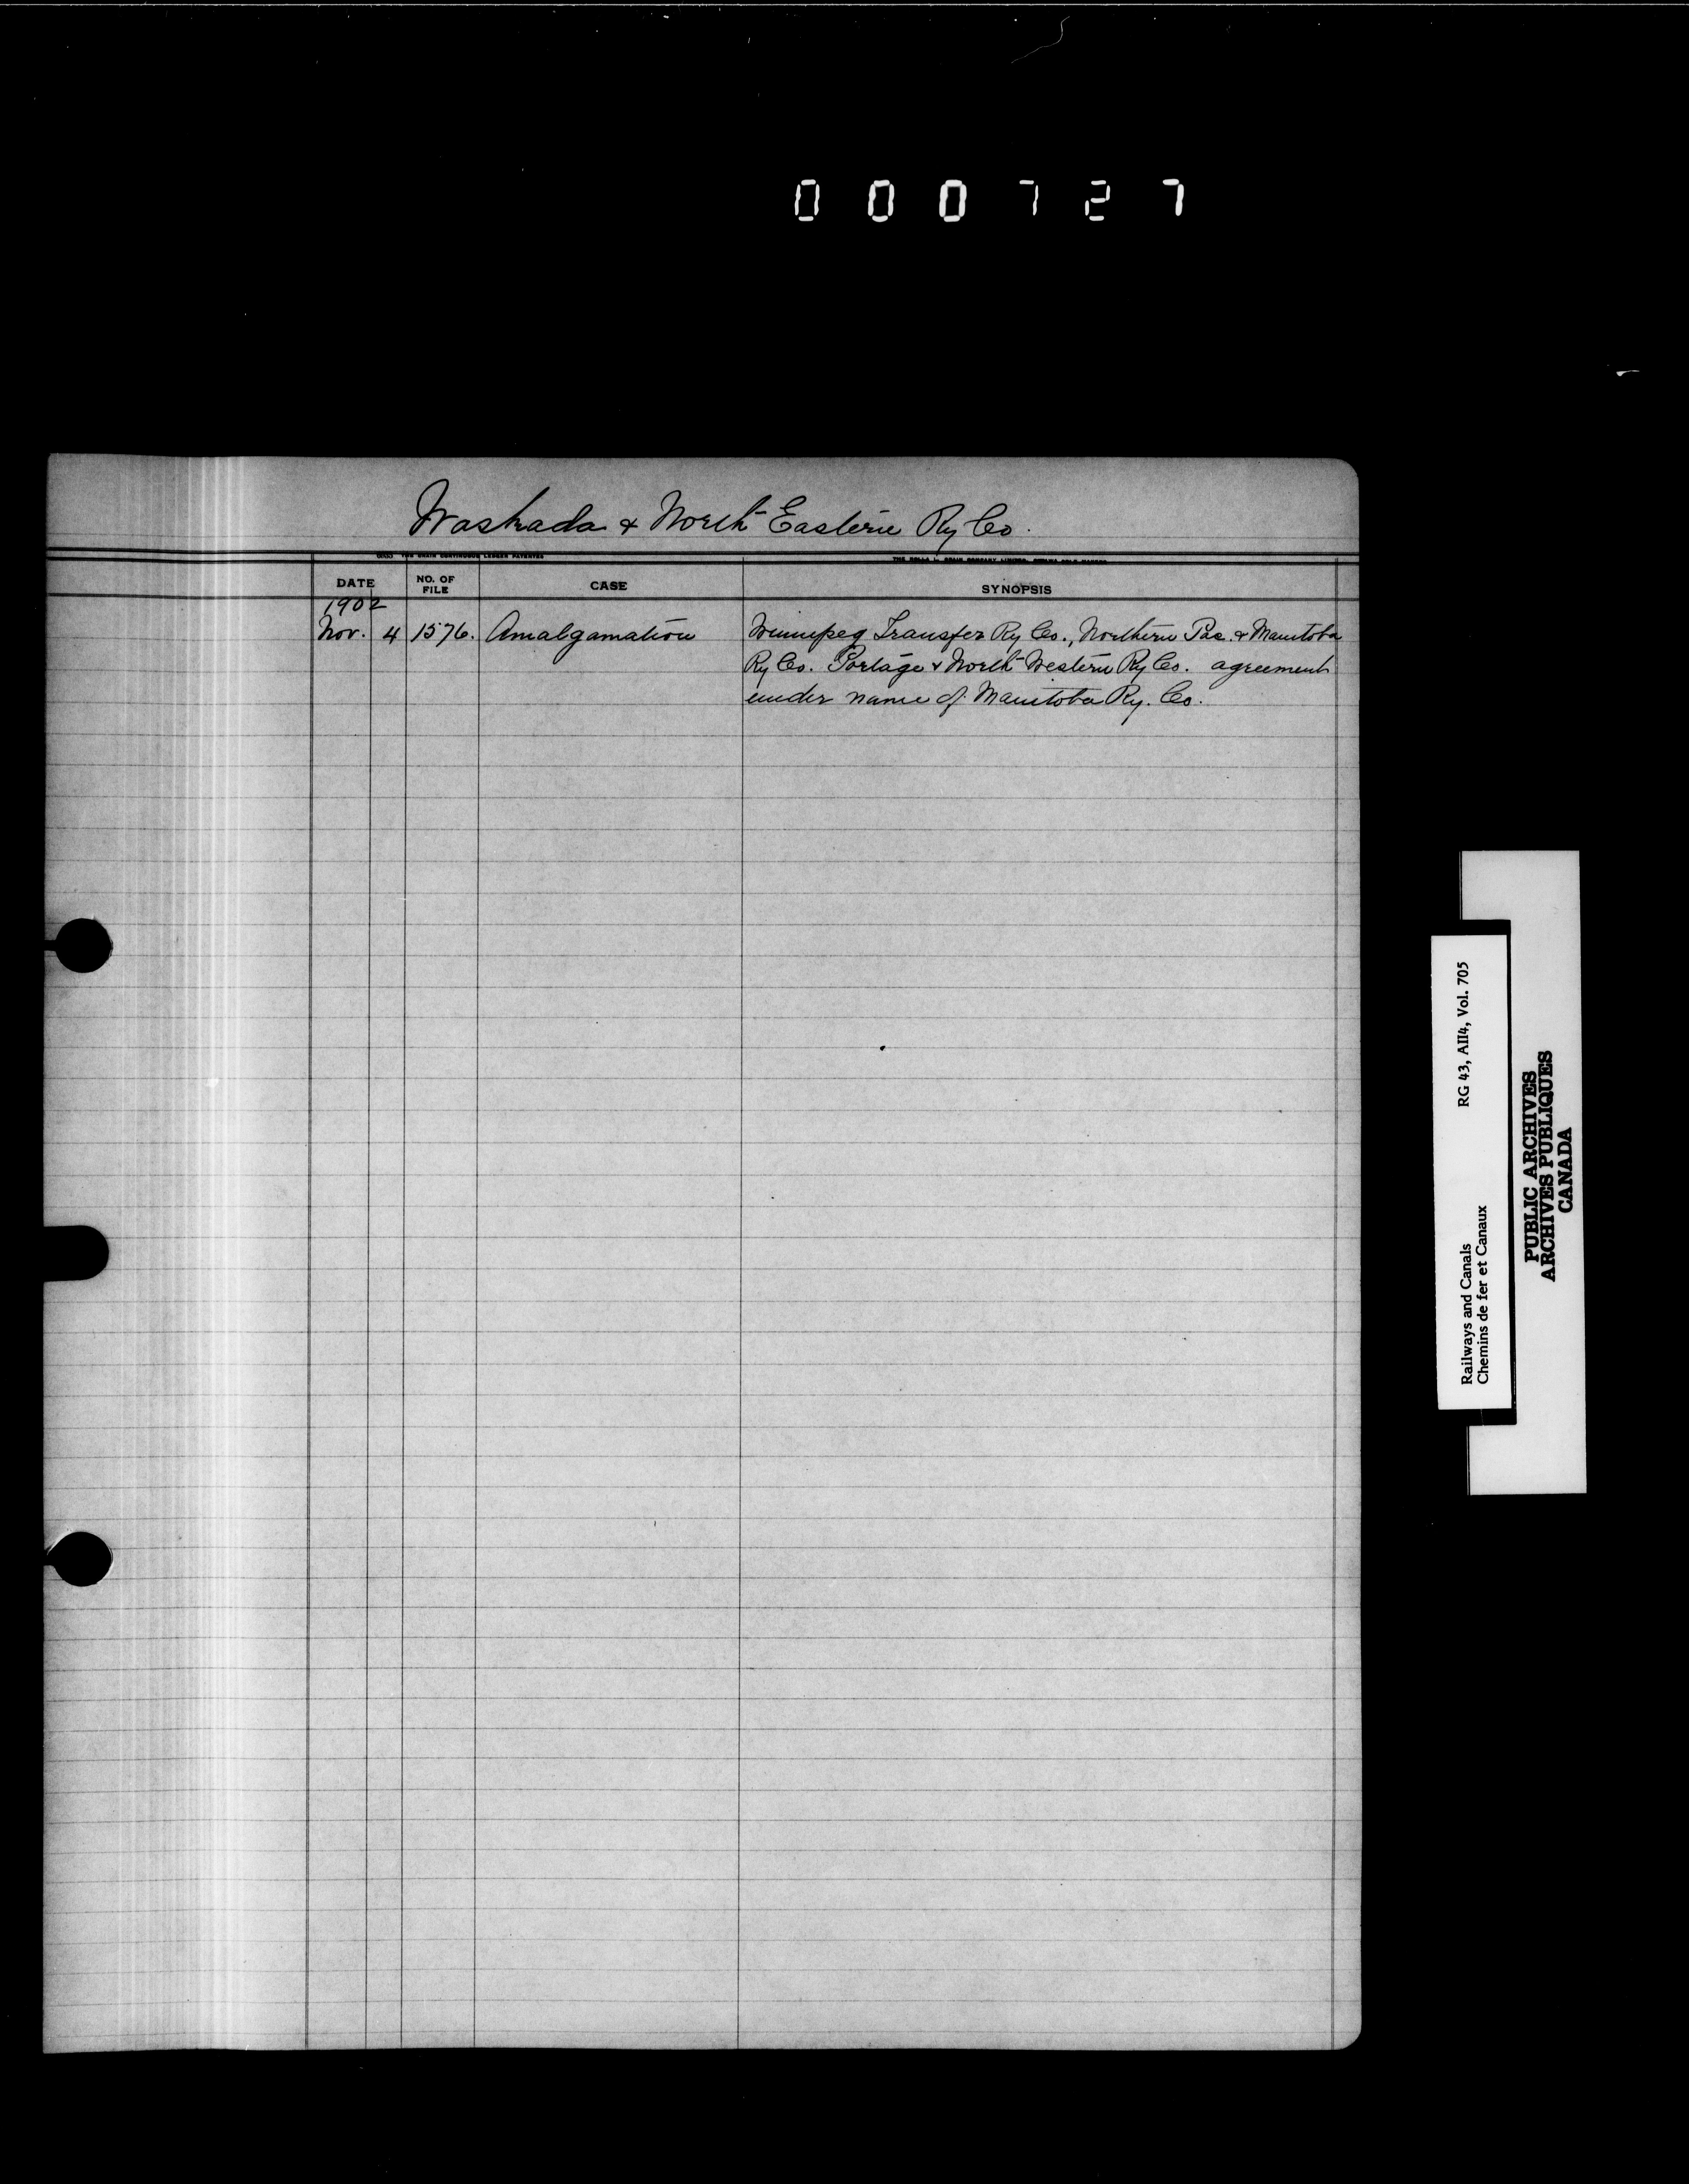 000727
Waskada & North-Eastern Ry Co.
DATE NO. OF FILE CASE SYNOPSIS
1902
Nov. 4 1576. Amalgamation Winnipeg Transfer Ry Co., Northern Pac. & Manitoba
Ry Co. Portage & North-Western Ry Co. agreement
under name of Manitoba Ry. Co.
Railways and Canals RG 43, AII4, Vol. 705
Chemins de fer et Canaux
PUBLIC ARCHIVES
ARCHIVES PUBLIQUES
CANADA